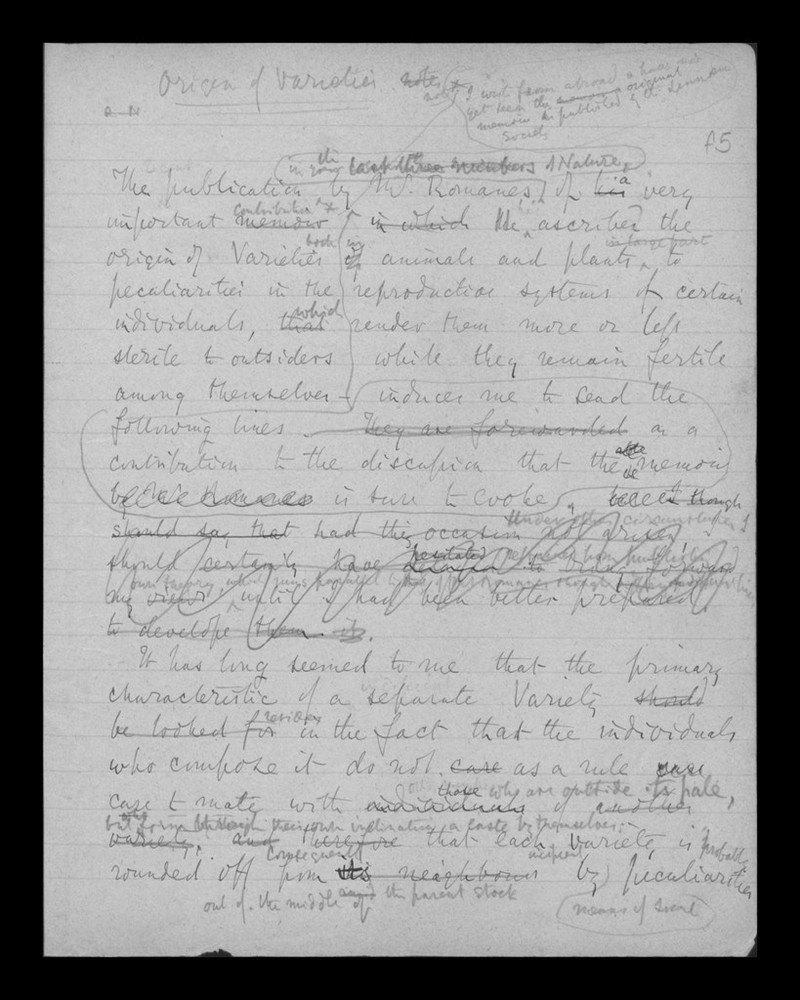 Origin of Varieties
I write from abroad & have not
yet seen the original
memoir published by the Linnean
Society
in the last three numbers of Nature
The publication by Mr. Romanes, of his a very
contribution
important memoir in which He ascribes the
both in in large part
origin of Varieties of animals and plants, to
peculiarities in the reproductive systems of certain
which
individuals, that render them more or less
sterile to outsiders while they remain fertile
among themselves – induces me to send the
following lines. They are forwarded as a
contribution to the discussion that the memoir
is sure to evoke, though
Under other circumstances I
should say that had this occasion not arisen
hesitated
should certainly have delayed to bring forward
my views until I had been better prepared
to develope them it.
It has long seemed to me that the primary
characteristic of a separate Variety should
resides
be looked for in the fact that the individuals
who compose it do not care as a rule care
those who are outside its pale,
care to mate with individuals of another
but form through their own inclinations a caste by themselves;
variety, and therefore that each variety is probably
consequently incipient
rounded off from its neighbours by peculiarities
out of the middle of the parent stock
means of